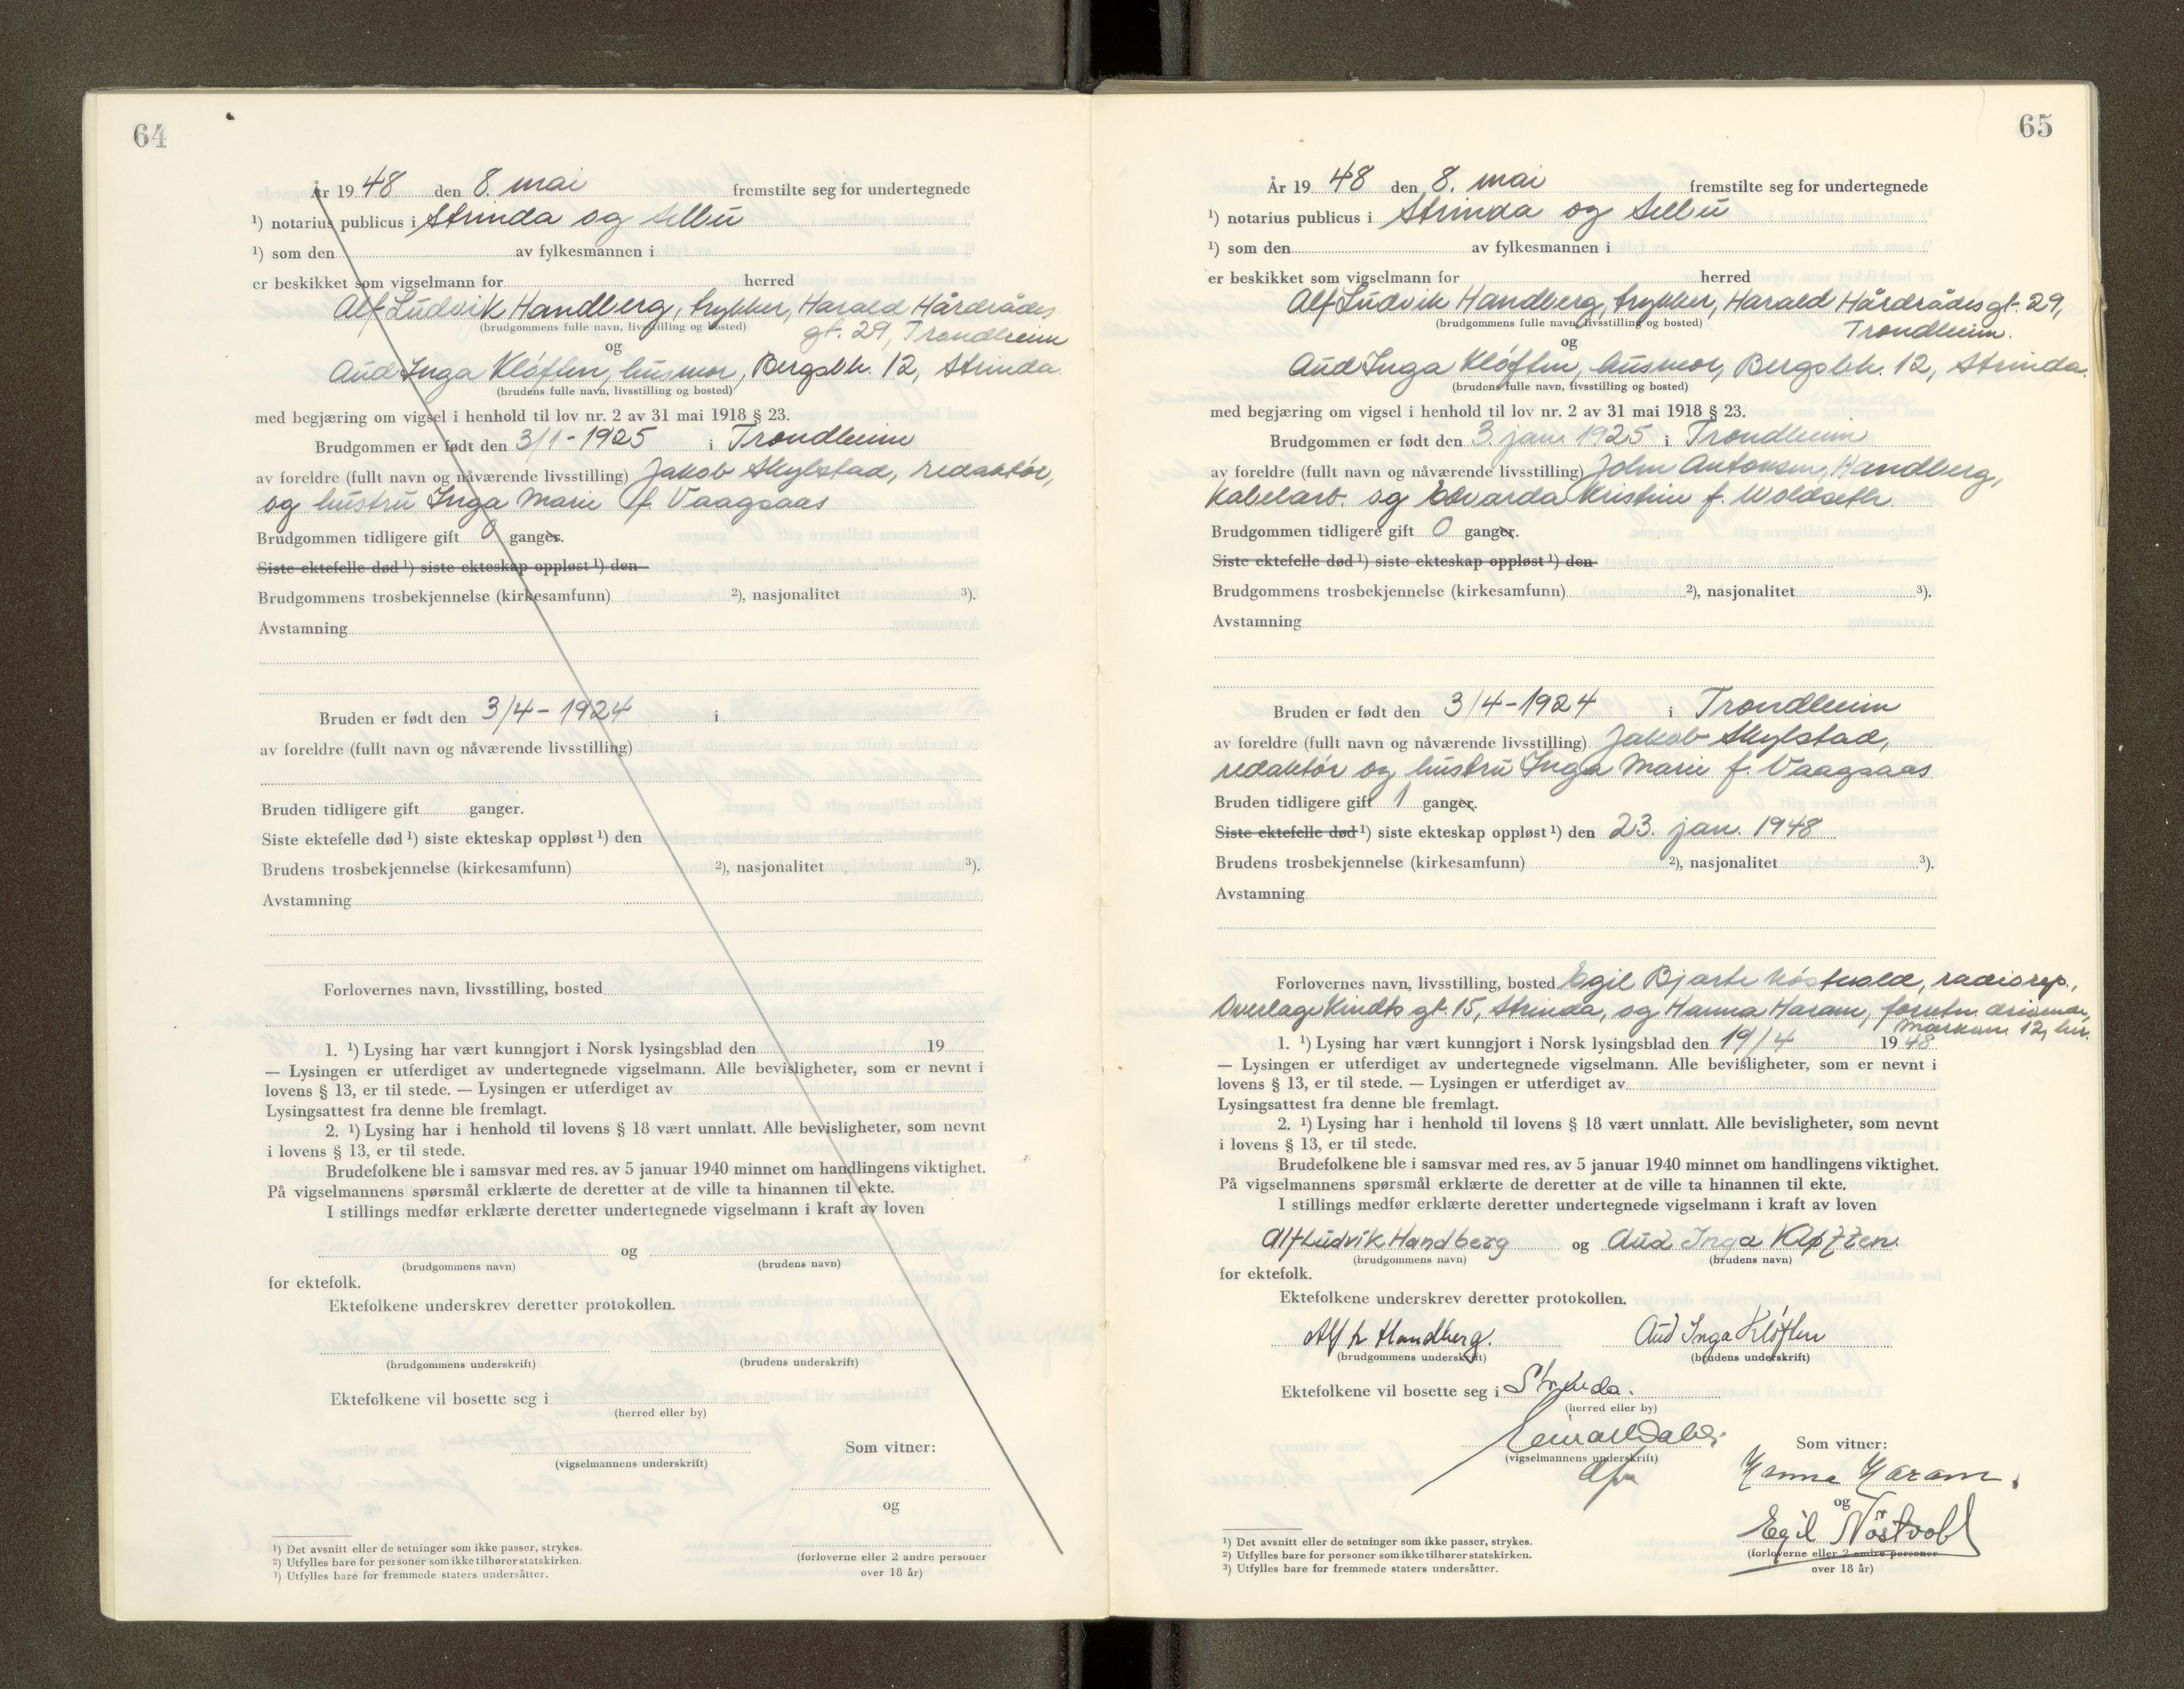 64
År 1948 den 8. mai fremstilte seg for undertegnede
¹) notarius publicus i Strinda og Selbu
¹) som den av fylkesmannen i
er beskikket som vigselmann for herred
Alf Ludvik Handberg, trykker, Harald Hårdrådes
(brudgommens fulle navn, livsstilling og bosted)
gt. 29, Trondheim
og
Aud Inga Kløften, husmor, Bergsbk. 12, Strinda.
(brudens fulle navn, livsstilling og bosted)
med begjæring om vigsel i henhold til lov nr. 2 av 31 mai 1918 § 23.
Brudgommen er født den 3/1-1925 i Trondheim
av foreldre (fullt navn og nåværende livsstilling) Jakob Skylstad, redaktør,
og hustru Inga Marie f. Vaagsaas
Brudgommen tidligere gift 0 ganger.
Siste ektefelle død ¹) siste ekteskap oppløst ¹) den
Brudgommens trosbekjennelse (kirkesamfunn) ²), nasjonalitet ³).
Avstamning
Bruden er født den 3/4-1924 i
av foreldre (fullt navn og nåværende livsstilling)
Bruden tidligere gift ganger.
Siste ektefelle død ¹) siste ekteskap oppløst ¹) den
Brudens trosbekjennelse (kirkesamfunn) ²), nasjonalitet ³).
Avstamning
Forlovernes navn, livsstilling, bosted
1. ¹) Lysing har vært kunngjort i Norsk lysingsblad den 19
— Lysingen er utferdiget av undertegnede vigselmann. Alle bevisligheter, som er nevnt i
lovens § 13, er til stede. — Lysingen er utferdiget av
Lysingsattest fra denne ble fremlagt.
2. ¹) Lysing har i henhold til lovens § 18 vært unnlatt. Alle bevisligheter, som nevnt
i lovens § 13, er til stede.
Brudefolkene ble i samsvar med res. av 5 januar 1940 minnet om handlingens viktighet.
På vigselmannens spørsmål erklærte de deretter at de ville ta hinannen til ekte.
I stillings medfør erklærte deretter undertegnede vigselmann i kraft av loven
og
(brudgommens navn) (brudens navn)
for ektefolk.
Ektefolkene underskrev deretter protokollen.
(brudgommens underskrift) (brudens underskrift)
Ektefolkene vil bosette seg i
(herred eller by)
(vigselmannens underskrift)
Som vitner:
og
(forloverne eller 2 andre personer
over 18 år)
¹) Det avsnitt eller de setninger som ikke passer, strykes.
²) Utfylles bare for personer som ikke tilhører statskirken.
³) Utfylles bare for fremmede staters undersåtter.
65
År 1948 den 8. mai fremstilte seg for undertegnede
¹) notarius publicus i Strinda og Selbu
¹) som den av fylkesmannen i
er beskikket som vigselmann for herred
Alf Ludvik Handberg, trykker, Harald Hårdrådesgt. 29,
(brudgommens fulle navn, livsstilling og bosted)
Trondheim.
og
Aud Inga Kløften, husmor, Bergsbk. 12, Strinda.
(brudens fulle navn, livsstilling og bosted)
med begjæring om vigsel i henhold til lov nr. 2 av 31 mai 1918 § 23.
Brudgommen er født den 3. jan. 1925 i Trondheim
av foreldre (fullt navn og nåværende livsstilling) John Antonsen Handberg,
kabelarb. og Edvarda Kristine f. Woldseth.
Brudgommen tidligere gift 0 ganger.
Siste ektefelle død ¹) siste ekteskap oppløst ¹) den
Brudgommens trosbekjennelse (kirkesamfunn) ²), nasjonalitet ³).
Avstamning
Bruden er født den 3/4-1924 i Trondheim
av foreldre (fullt navn og nåværende livsstilling) Jakob Skylstad,
redaktør og hustru Inga Marie f. Vaagsaas
Bruden tidligere gift 1 ganger.
Siste ektefelle død ¹) siste ekteskap oppløst ¹) den 23. jan. 1948
Brudens trosbekjennelse (kirkesamfunn) ²), nasjonalitet ³).
Avstamning
Forlovernes navn, livsstilling, bosted Egil Bjarte Nøstvold, radiorep.,
Overlege Kindts gt. 15, Strinda, og Hanna Haram,
12,
1. ¹) Lysing har vært kunngjort i Norsk lysingsblad den 19/4 1948
— Lysingen er utferdiget av undertegnede vigselmann. Alle bevisligheter, som er nevnt i
lovens § 13, er til stede. — Lysingen er utferdiget av
Lysingsattest fra denne ble fremlagt.
2. ¹) Lysing har i henhold til lovens § 18 vært unnlatt. Alle bevisligheter, som nevnt
i lovens § 13, er til stede.
Brudefolkene ble i samsvar med res. av 5 januar 1940 minnet om handlingens viktighet.
På vigselmannens spørsmål erklærte de deretter at de ville ta hinannen til ekte.
I stillings medfør erklærte deretter undertegnede vigselmann i kraft av loven
Alf Ludvik Handberg og Aud Inga Kløften.
(brudgommens navn) (brudens navn)
for ektefolk.
Ektefolkene underskrev deretter protokollen.
Alf L Handberg. Aud Inga Kløften
(brudgommens underskrift) (brudens underskrift)
Ektefolkene vil bosette seg i Strinda.
(herred eller by)
(vigselmannens underskrift)
Som vitner:
Hanna Haram.
og
Egil Nöstvold
(forloverne eller 2 andre personer
over 18 år)
¹) Det avsnitt eller de setninger som ikke passer, strykes.
²) Utfylles bare for personer som ikke tilhører statskirken.
³) Utfylles bare for fremmede staters undersåtter.